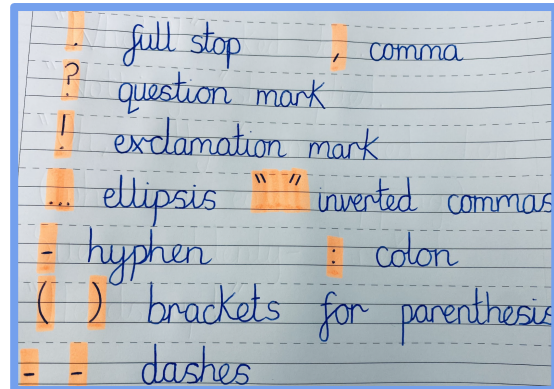 . full stop , comma
? question mark
! exclamation mark
... ellipsis " " inverted commas
- hyphen : colon
( ) brackets for parenthesis
- - dashes